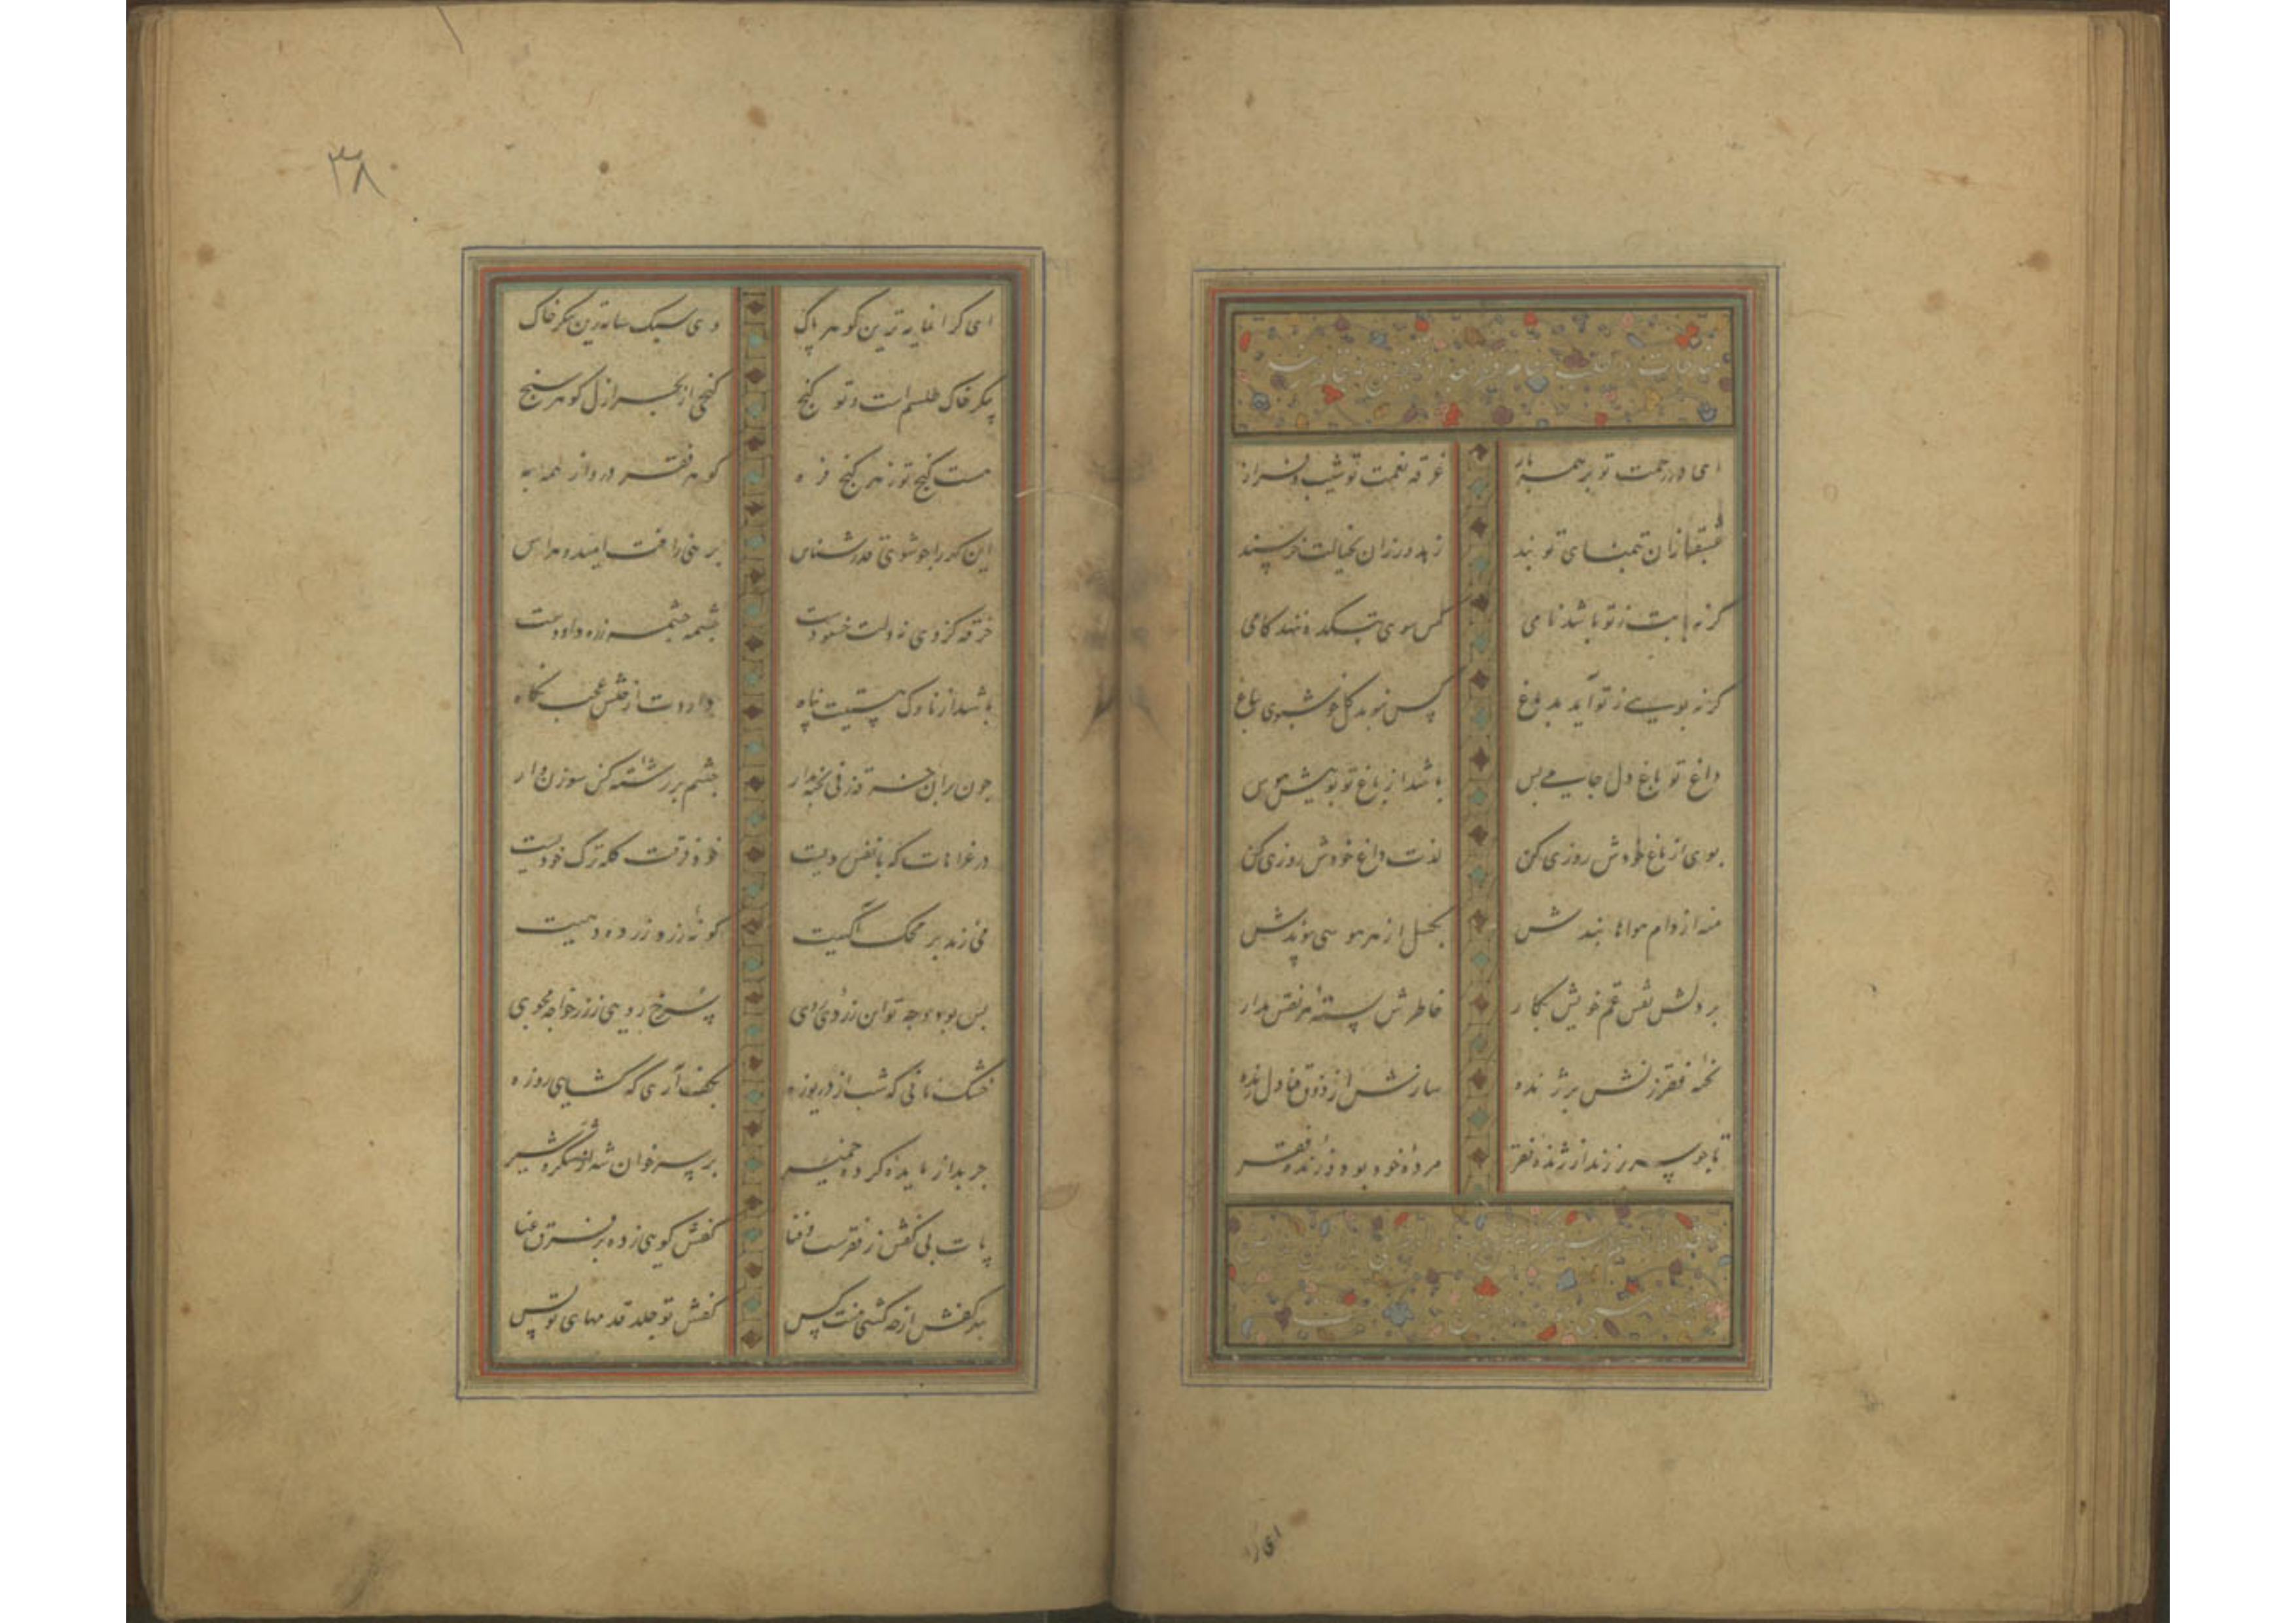 ای در رحمت تو بر همه باز غرقه نعمت تو شیب و فراز
عشقبازان بتمنای تو بند زهدورزان بخیالت خرسند
گر نه با بت ز تو باشد نامی کس سوی بتکده ننهد کامی
گر نه بویی ز تو آید بدماغ کس نبوید گل خوشبوی بباغ
داغ تو باغ دل جامی بس باشد از باغ تو بوییش هوس
بوی از باغ خودش روزی کن لذت داغ خودش روزی کن
منه از دام هواها بندش بگسل از هر هوسی پیوندش
بر دلش نقش غم خویش نگار خاطرش بسته هر نقش مدار
بخیه فقر زنش بر ژنده سازش از ذوق فنا دل زنده
تا چو سر بر زند از ژنده فقر مرده خود بود و زنده فقر
ای کر
۳۸
ای گرانمایه ترین گوهر پاک وی سبک سایه ترین پیکر خاک
پیکر خاک طلسم است و تو گنج گنجی از بحر ازل گوهر سنج
هست گنج تو ز هر گنج فره گوهر فقر در و از همه به
این گهر را چو شوی قدرشناس بر خی را فت امید و هراس
خرقه کز وی نه دلت خشنودست چشمه چشمه زره داودست
باشد از ناوک هستیت پناه داردت از خلش عجب نگاه
چون بر آن خرقه زنی بخیه بدار چشم بر رشته کن سوزن وار
در غزاتات که با نفس دنیست خود فرقت کله ترک خودیست
می زند بر محک آگهیت گونه زرد زر ده دهیت
بس بود وجه تو این زردی روی سرخ رویی ز زر خواجه مجوی
خشک نانی که شب از دریوزه بکف آری که گشایی روزه
چرب از مایده کرده خمیر بر سر خوان شه از شکر و شیر
پات بی کفش ز فقرست و فنا کفش کوبی زده بر فرق غنا
بهر کفش از چه کشی منت کس کفش تو جلد قدمهای تو بس